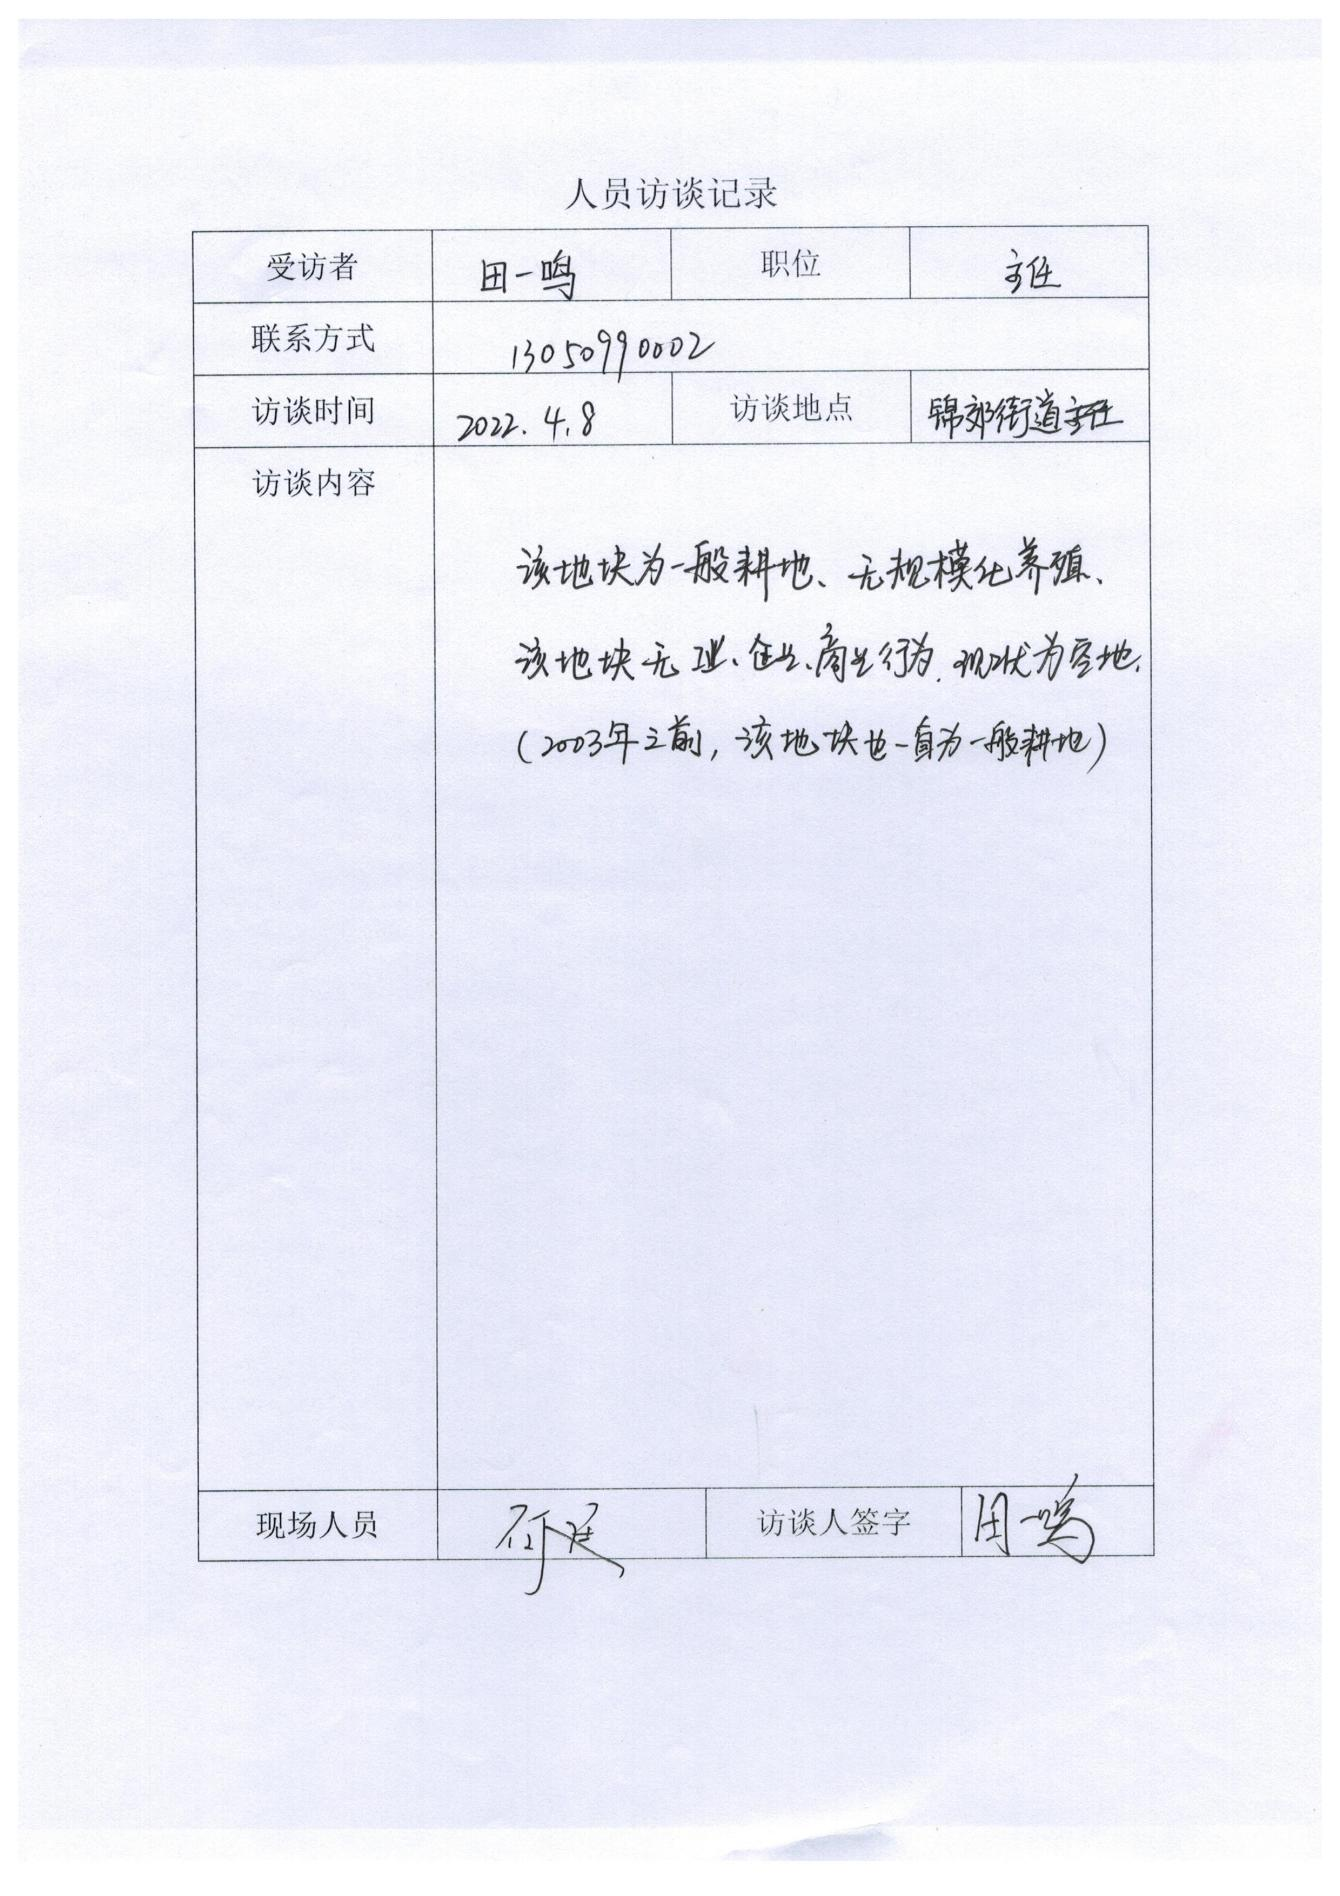 人员访谈记录
受访者 田一鸣 职位 主任
联系方式 13050990002
访谈时间 2022.4.8 访谈地点 锦郊街道主任
访谈内容
该地块为一般耕地、无规模化养殖、
该地块无工业、企业、商业行为,现状为空地.
(2003年之前,该地块也一直为一般耕地)
现场人员 访谈人签字 田一鸣